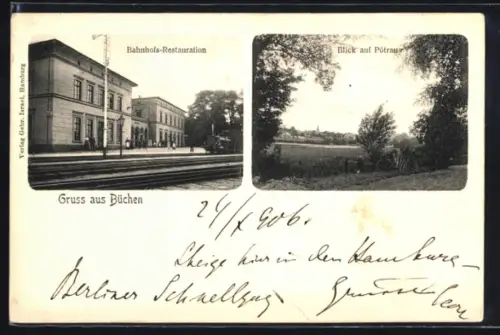 Verlag Gebr. Israel, Hamburg
Bahnhofs-Restauration
Blick auf Pötrau
Gruss aus Büchen
24/ 906.
Steige hier in den Hamburg-
Berliner Schnellzug